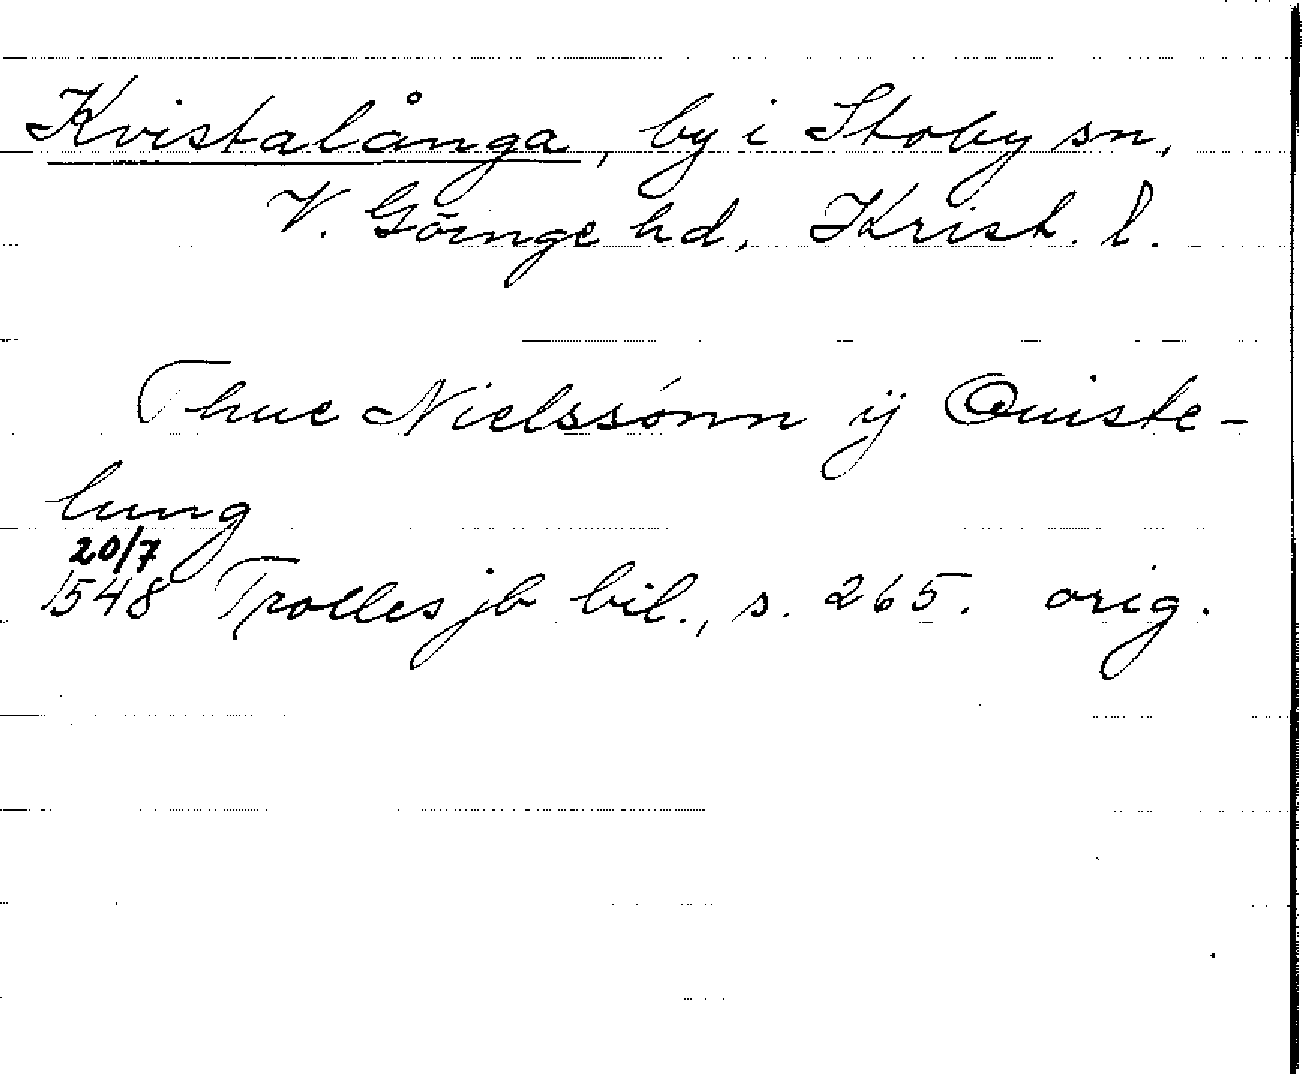 Kvistalånga, by i Stoby sn,
V. Göinge hd, Krist. l.
Thue Nielssónn ÿ Quiste-
lung
20/7
1548 Trolles jb bil., s. 265. orig.